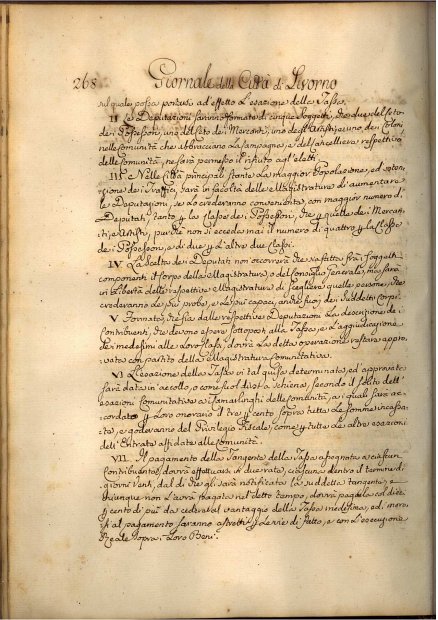 268 Giornale della Città di Livorno
sul quale possa portarsi ad effetto l'esazione della Tassa.
II. Le Deputazioni saranno formate di cinque Soggetti, due del Ceto
dei Possessori, uno del Ceto dei Mercanti, uno degl'Artisti, e uno dei Coloni
nelle Comunità che abbracciano la Campagna, e del Cancelliere respettivo
delle Comunità, ne sarà permesso il rifiuto agl'eletti.
III. Nelle Città principali stante la maggior Popolazione, ed esten-
zione dei Traffici, sarà in facoltà delle Magistrature di aumentare
le Deputazioni, se lo crederanno conveniente, con maggior numero di
Deputati tanto per la Classe dei Possessori, che per quella dei Mercan-
ti, e Artisti, purchè non si ecceda mai il numero di quattro per la Classe
dei Possessori, e di due per l'altre due Classi.
IV. La Scelta dei Deputati non occorrerà che sia fatta fra i soggetti
componenti il Corpo della Magistratura, o del Consiglio Generale, ma sarà
in libertà delle respettive Magistrature di scegliere quelle persone, che
crederanno le più probe, e le più capaci, anche fuori dei suddetti Corpi.
V. Formata che sia dalle respettive Deputazioni la descrizione dei
Contribuenti, che devono essere sottoposti alla Tassa, e l'aggiudicazione
dei medesimi alle loro Classi, dovrà la detta operazione restare appro-
vata con partito della Magistratura Comunitativa.
VI. L'esazione della Tassa in tal guisa determinata, ed approvata
sarà data in accollo, o come suol dirsi a schiena, secondo il solito dell'
esazioni Comunitative ai Camarlinghi delle Comunità, ai quali sarà ac-
cordato per loro onorario il tre per cento sopra tutte le somme incassa-
te, e goderanno del Privilegio Fiscale, come per tutte le altre esazioni
dell'Entrate affidate alle Comunità.
VII. Il pagamento della Tangente della Tassa assegnata a ciascun
Contribuente, dovrà effettuarsi in due rate, ciascuna dentro il termine di
giorni Venti, dal dì che gli sarà notificata la suddetta tangente, e
chiunque non l'avrà pagata nel detto tempo, dovrà pagarla col dieci
per cento di più da cedere al vantaggio della Tassa medesima, ed i moro-
si al pagamento saranno astretti per le vie di fatto, e con l'esecuzione
Reale sopra i loro Beni.